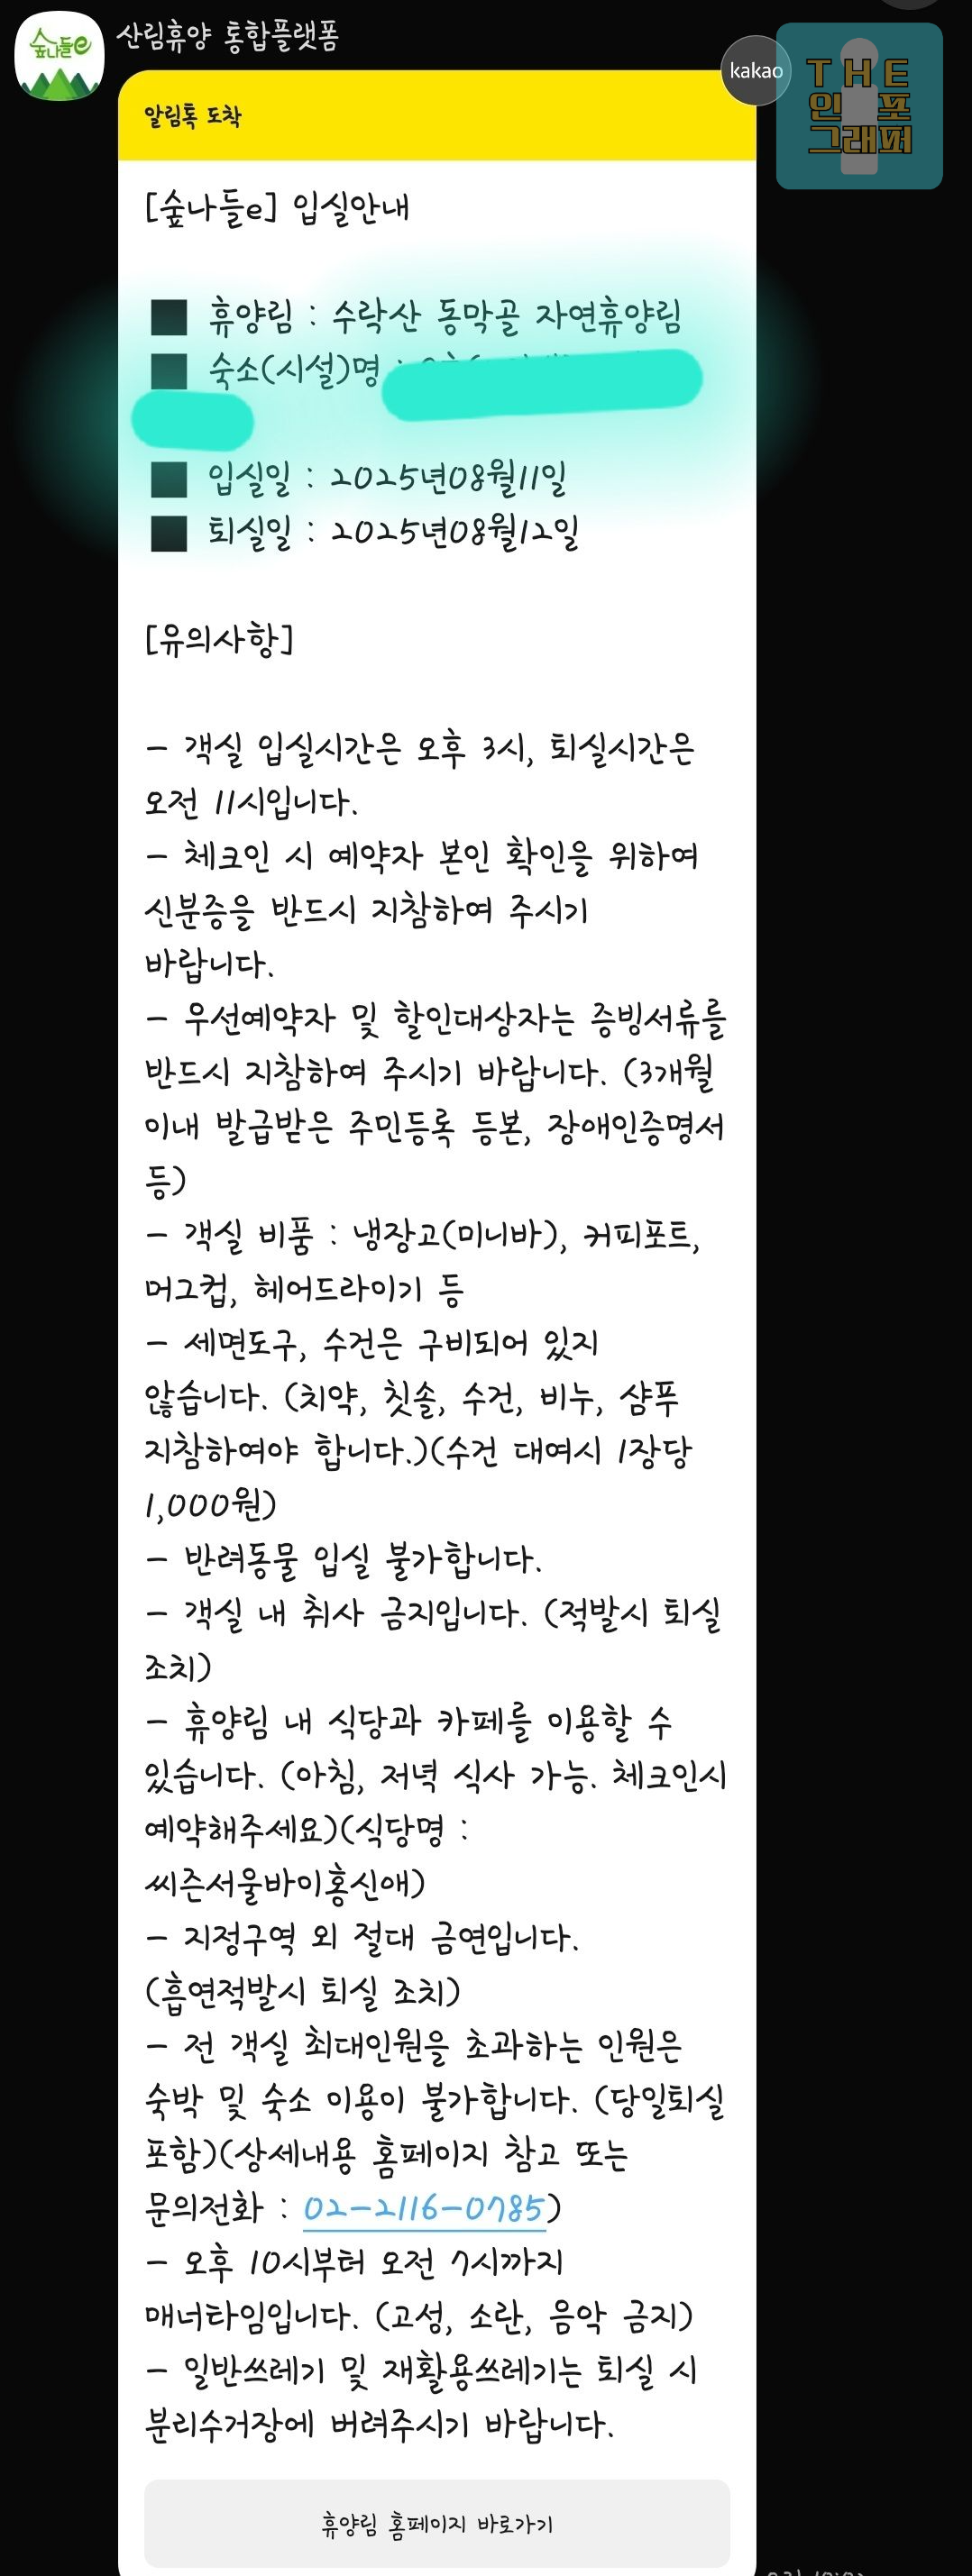 숲나들e
산림휴양 통합플랫폼
kakao
THE
인포
그래퍼
알림톡 도착
[숲나들e] 입실안내
■ 휴양림 : 수락산 동막골 자연휴양림
■ 숙소(시설)명 :
■ 입실일 : 2025년08월11일
■ 퇴실일 : 2025년08월12일
[유의사항]
- 객실 입실시간은 오후 3시, 퇴실시간은
오전 11시입니다.
- 체크인 시 예약자 본인 확인을 위하여
신분증을 반드시 지참하여 주시기
바랍니다.
- 우선예약자 및 할인대상자는 증빙서류를
반드시 지참하여 주시기 바랍니다. (3개월
이내 발급받은 주민등록 등본, 장애인증명서
등)
- 객실 비품 : 냉장고(미니바), 커피포트,
머그컵, 헤어드라이기 등
- 세면도구, 수건은 구비되어 있지
않습니다. (치약, 칫솔, 수건, 비누, 샴푸
지참하여야 합니다.)(수건 대여시 1장당
1,000원)
- 반려동물 입실 불가합니다.
- 객실 내 취사 금지입니다. (적발시 퇴실
조치)
- 휴양림 내 식당과 카페를 이용할 수
있습니다. (아침, 저녁 식사 가능. 체크인시
예약해주세요)(식당명 :
씨즌서울바이홍신애)
- 지정구역 외 절대 금연입니다.
(흡연적발시 퇴실 조치)
- 전 객실 최대인원을 초과하는 인원은
숙박 및 숙소 이용이 불가합니다. (당일퇴실
포함)(상세내용 홈페이지 참고 또는
문의전화 : 02-2116-0785)
- 오후 10시부터 오전 7시까지
매너타임입니다. (고성, 소란, 음악 금지)
- 일반쓰레기 및 재활용쓰레기는 퇴실 시
분리수거장에 버려주시기 바랍니다.
휴양림 홈페이지 바로가기